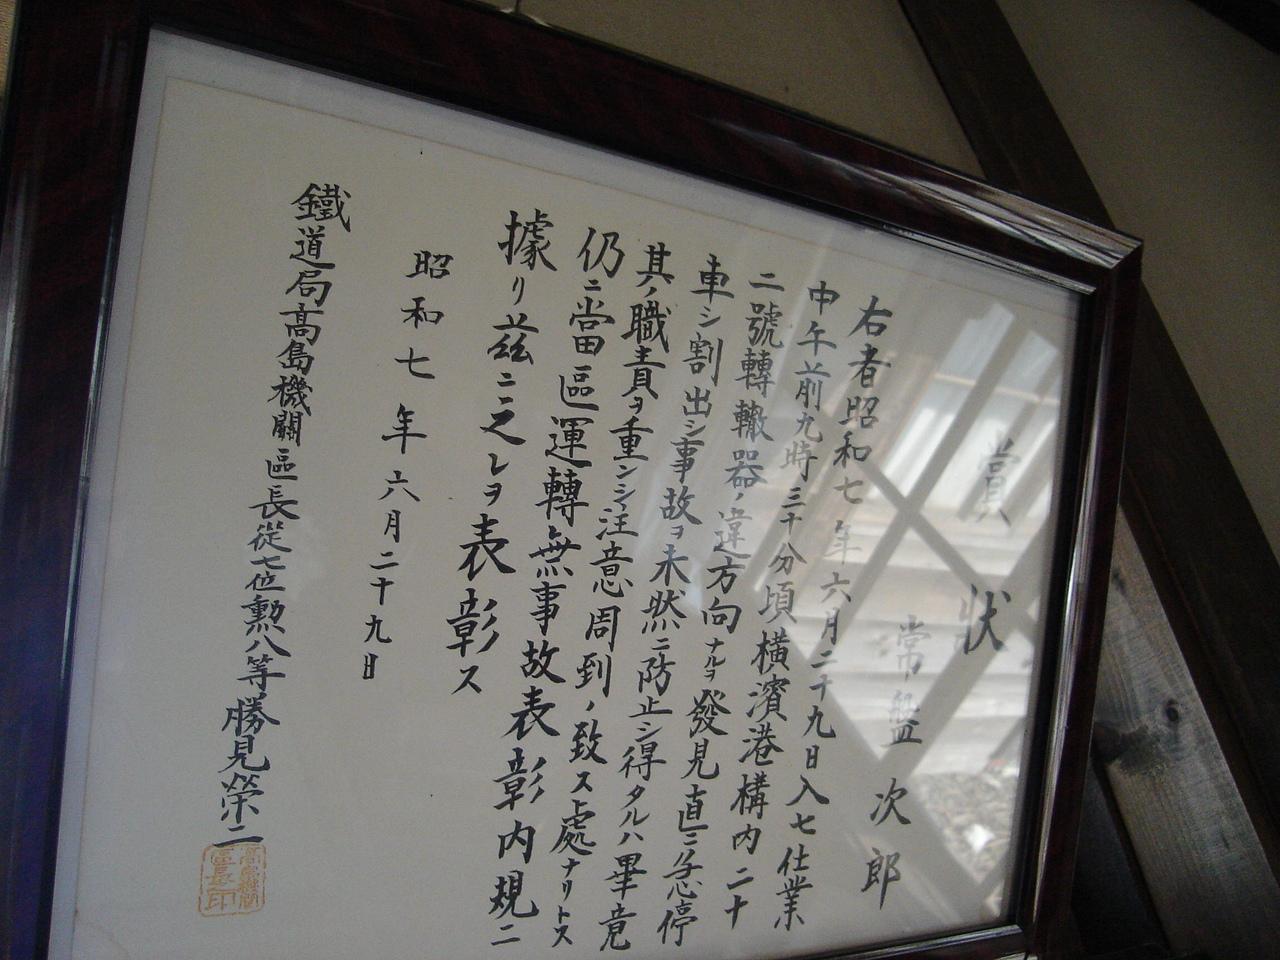 賞狀
常盤次郎
右者昭和七年六月二十九日入七仕業
中午前九時三十分頃橫濱港構內二十
二號轉轍器ノ違方向ナルヲ發見直ニ急停
車シ割出シ事故ヲ未然ニ防止シ得タルハ畢竟
其ノ職責ヲ重ンシ注意周到ノ致ス處ナリトス
仍ニ當區運轉無事故表彰內規ニ
據リ茲ニ之レヲ表彰ス
昭和七年六月二十九日
鐵道局高島機關區長從七位勳八等勝見榮二